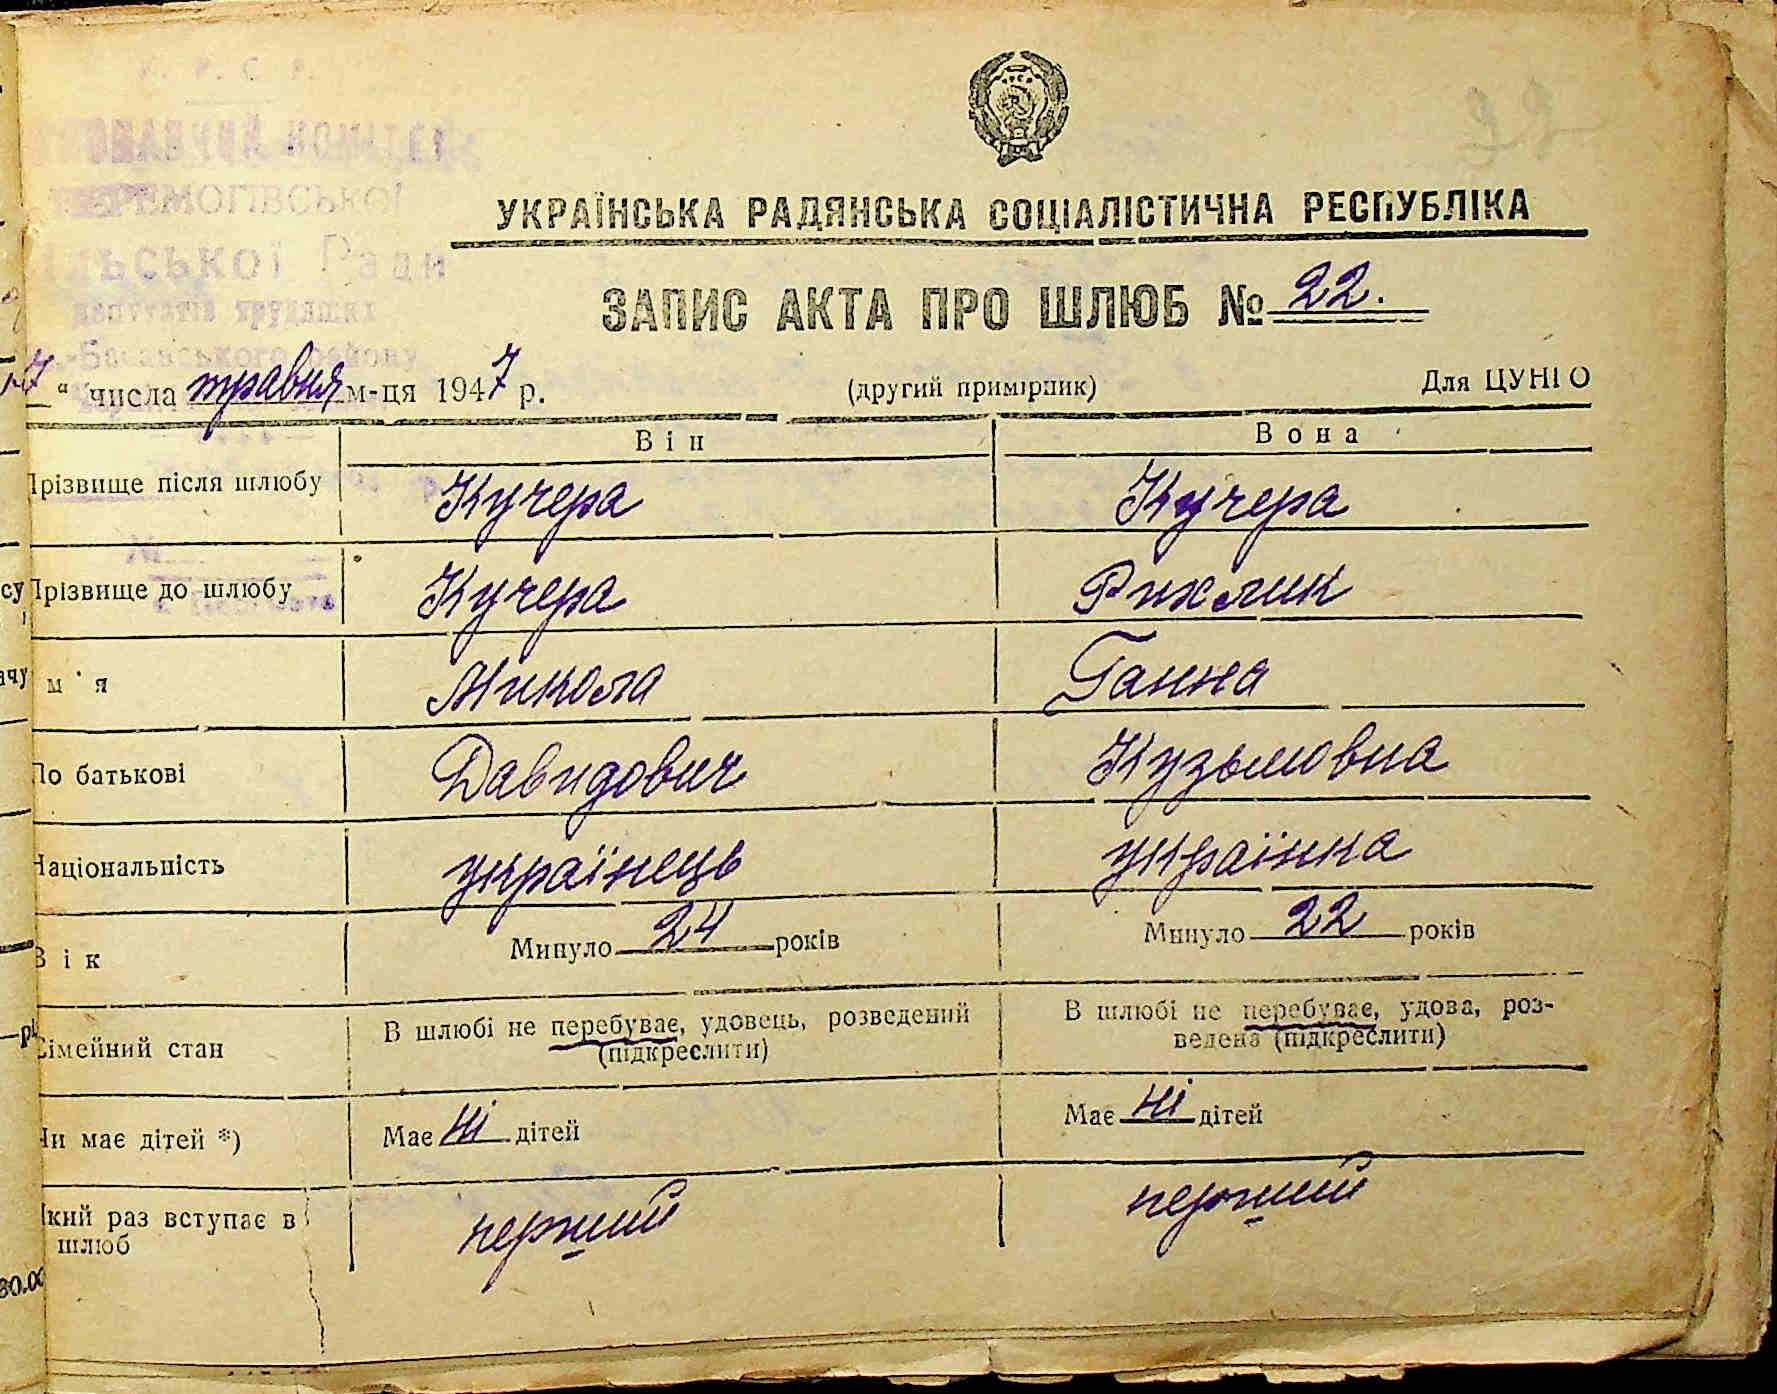 УКРАЇНСЬКА РАДЯНСЬКА СОЦІАЛІСТИЧНА РЕСПУБЛІКА
ЗАПИС АКТА ПРО ШЛЮБ № 22.
7 " числа травня м-ця 1947 р. (другий примірник) Для ЦУНГО
Він Вона
Прізвище після шлюбу Кучера Кучера
Прізвище до шлюбу Кучера Рихлик
м'я Микола Ганна
По батькові Давидович Кузьмовна
Національність українець українка
Вік Минуло 24 років Минуло 22 років
Сімейний стан В шлюбі не перебуває, удовець, розведений (підкреслити) В шлюбі не перебуває, удова, роз-
ведена (підкреслити)
Чи має дітей *) Має ні дітей Має ні дітей
Який раз вступає в шлюб перший перший